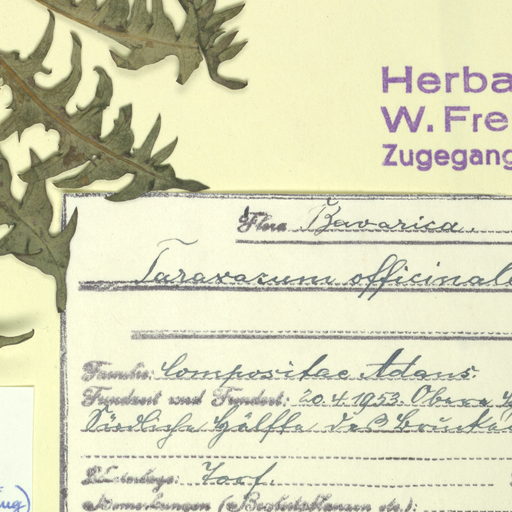 Herba
W. Fre
Zugegang
Flora Bavarica.
Taraxacum officinale
Familie: Compositae Adans.
Fundzeit und Fundort: 20.4.1953. Obere
Südliche Hälfte des
Unterlage: Torf.
Bemerkungen (Begleitpflanzen etc.):
ug)